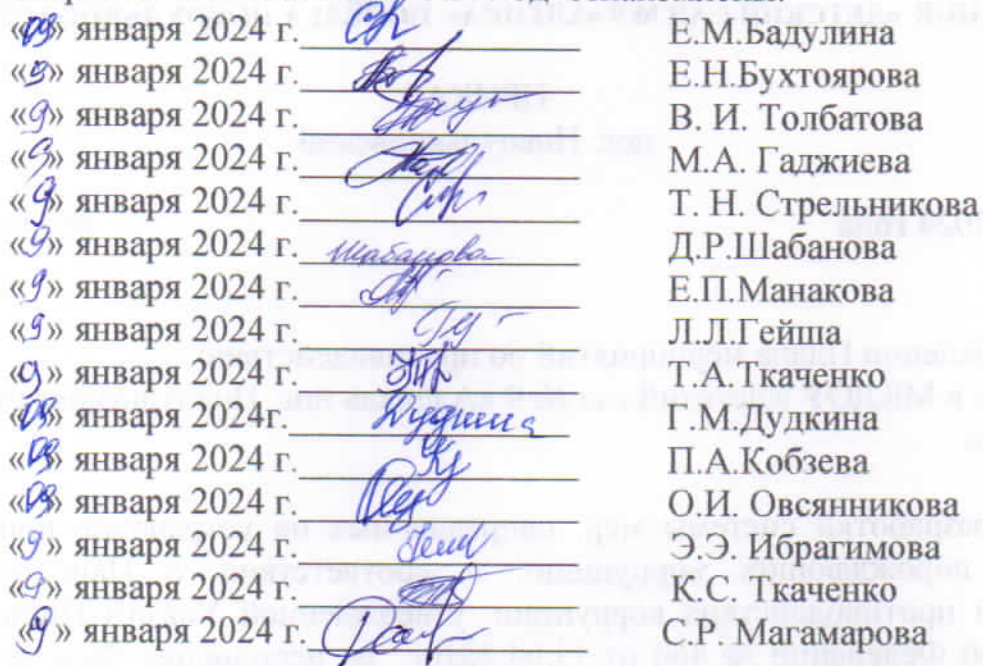 «09» января 2024 г. Е.М.Бадулина
«9» января 2024 г. Е.Н.Бухтоярова
«9» января 2024 г. В. И. Толбатова
«9» января 2024 г. М.А. Гаджиева
«9» января 2024 г. Т. Н. Стрельникова
«9» января 2024 г. Шабанова Д.Р.Шабанова
«9» января 2024 г. Е.П.Манакова
«9» января 2024 г. Л.Л.Гейша
«9» января 2024 г. Т.А.Ткаченко
«09» января 2024г. Дудкина Г.М.Дудкина
«09» января 2024 г. П.А.Кобзева
«09» января 2024 г. О.И. Овсянникова
«9» января 2024 г. Э.Э. Ибрагимова
«9» января 2024 г. К.С. Ткаченко
«9» января 2024 г. С.Р. Магамарова